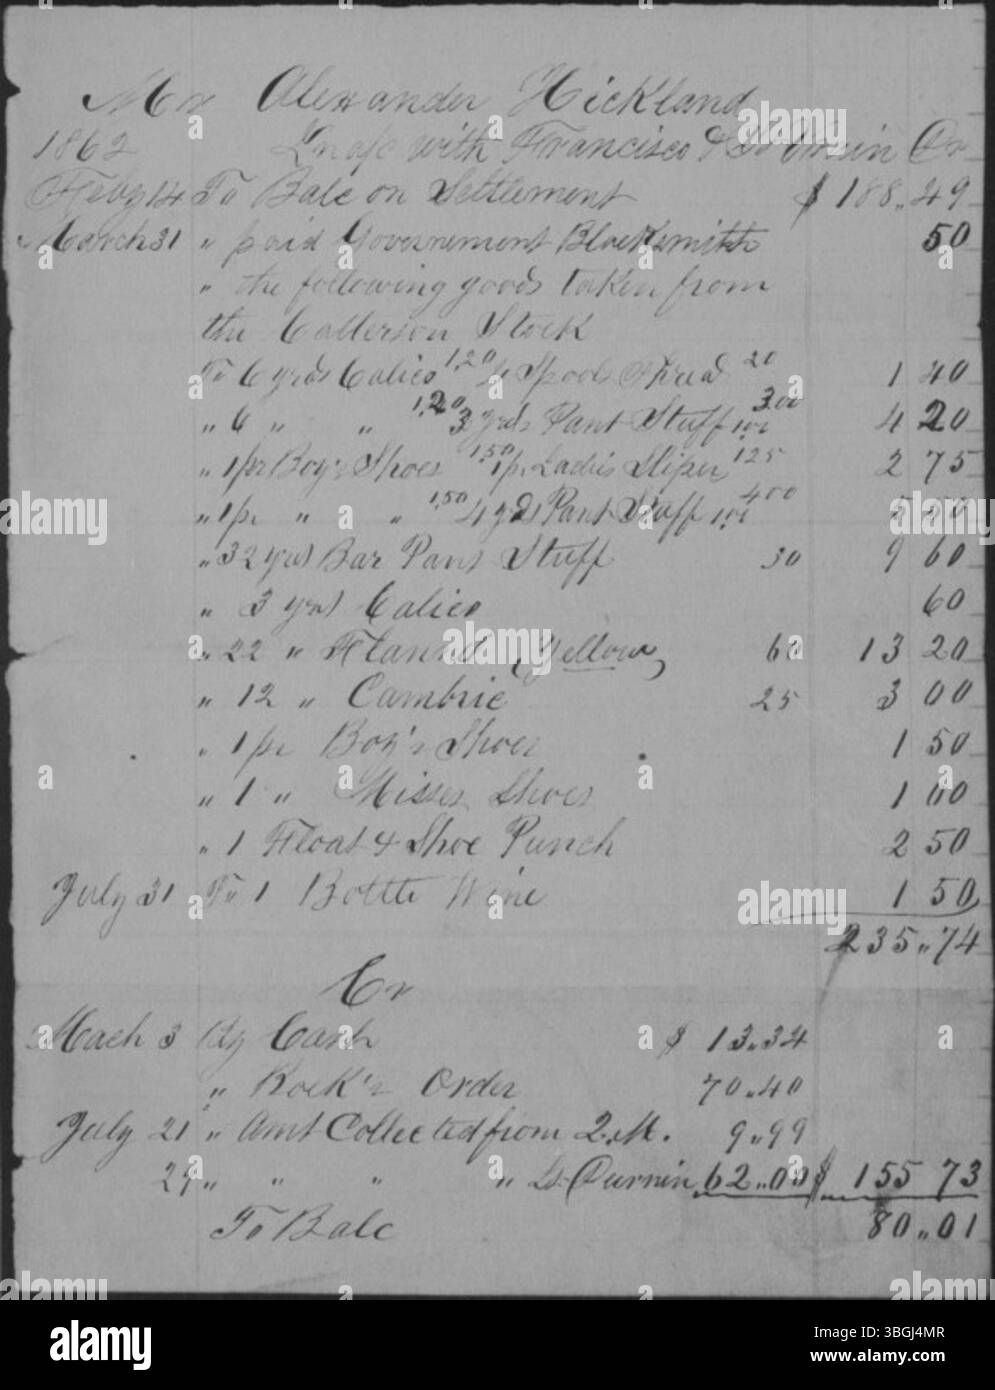 Mr Alexander Hickland
1862 In a/c with Francisco & Dr
Feby 14 To Balc on Settlement $ 188.49
March 31 " paid Governement Blacksmith 50
" the following goods taken from
the Catterson Stock
To 6 yrds Calico 1,20 Spools Thread 20 1 40
" 6 " " 1,20 3 yrds Pant Stuff 1,00 3.00 4 20
" 1 pr Boy's Shoes 1,50 1 pr Ladies Sliper 125 2 75
" 1 pr " " 1,50 4 yds Pant Stuff 1,00 400 5 50
" 32 yds Bar Pant Stuff 30 9 60
" 3 yds Calico 60
" 22 " Flannel (Yellow) 60 13 20
" 12 " Cambric 25 3 00
" 1 pr Boy's Shoes 1 50
" 1 " Misses Shoes 1 00
" 1 Float & Shoe Punch 2 50
July 31 To 1 Bottle Wine 1 50
235.74
Cr
Mach 3 By Cash $ 13.34
" Order 70.40
July 21 " Amt Collected from 2.M. 9.99
29 " " " " 62.00 $ 155 73
To Balc 80.01
alamy
Image ID: 3BGJ4MR
www.alamy.com